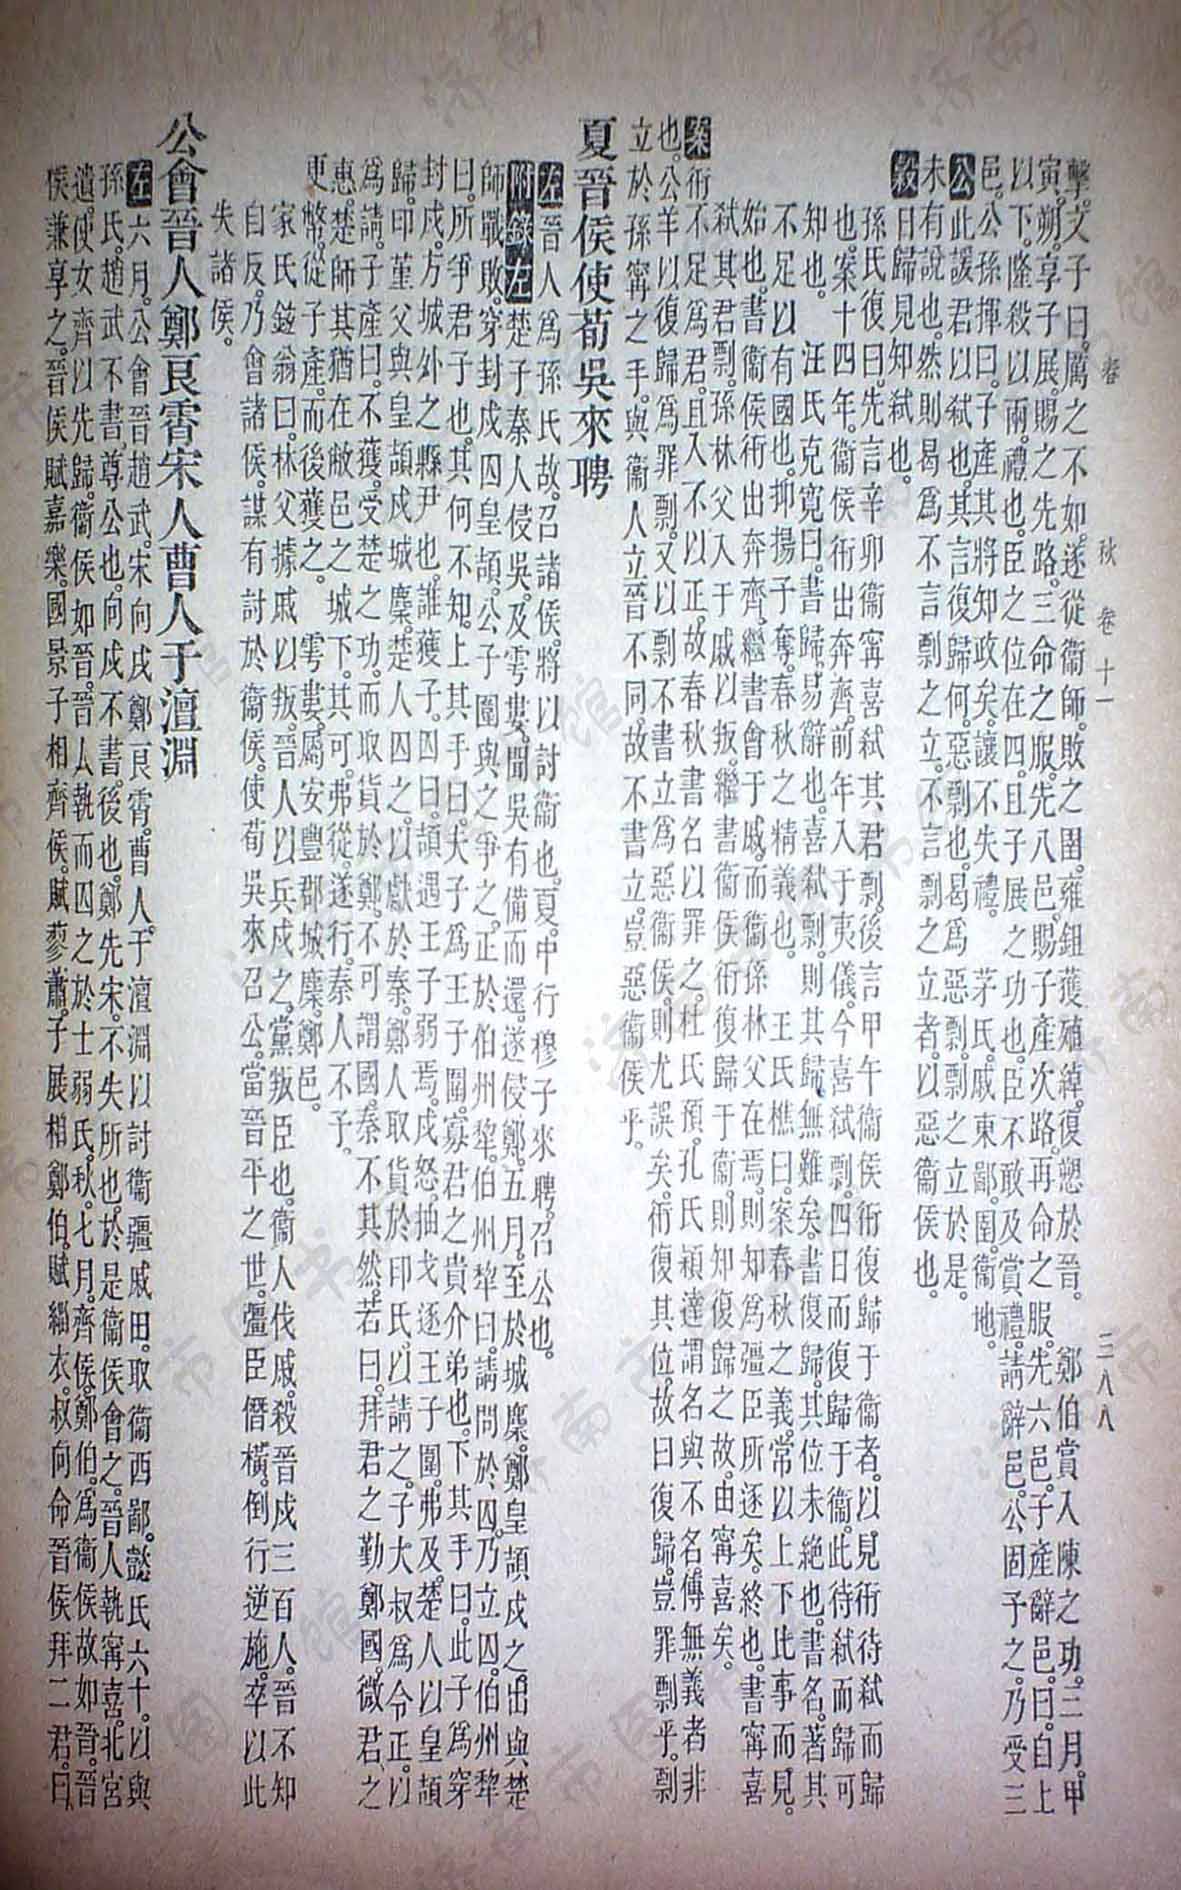 春秋 卷十一 三八八
擊。文子曰。厲之不如。遂從衞師。敗之圉。雍鉏獲殖綽。復愬於晉。 鄭伯賞入陳之功。三月。甲
寅。朔。享子展。賜之先路。三命之服。先八邑。賜子產次路。再命之服。先六邑。子產辭邑。曰。自上
以下。隆殺以兩。禮也。臣之位在四。且子展之功也。臣不敢及賞禮。請辭邑。公固予之。乃受三
邑。公孫揮曰。子產其將知政矣。讓不失禮。 茅氏。戚東鄙。圉。衞地。
公此諼君以弒也。其言復歸何。惡剽也。曷爲惡剽。剽之立於是。
未有說也。然則曷爲不言剽之立。不言剽之立者。以惡衞侯也。
穀日歸。見知弒也。
孫氏復曰。先言辛卯衞甯喜弒其君剽。後言甲午衞侯衎復歸于衞者。以見衎待弒而歸
也。案十四年。衞侯衎出奔齊。前年入于夷儀。今喜弒剽。四日而復歸于衞。此待弒而歸可
知也。 汪氏克寬曰。書歸。易辭也。喜弒剽。則其歸無難矣。書復歸。其位未絕也。書名。著其
不足以有國也。抑揚子奪。春秋之精義也。 王氏樵曰。案春秋之義。常以上下比事而見。
始也。書衞侯衎出奔齊。繼書會于戚。而衞孫林父在焉。則知爲彊臣所逐矣。終也。書甯喜
弒其君剽。孫林父入于戚以叛。繼書衞侯衎復歸于衞。則知復歸之故。由甯喜矣。
案衎不足爲君。且入不以正。故春秋書名以罪之。杜氏預。孔氏穎達謂名與不名。傳無義者非
也。公羊以復歸爲罪剽。又以剽不書立爲惡衞侯。則尤誤矣。衎復其位。故曰復歸。豈罪剽乎。剽
立於孫甯之手。與衞人立晉不同。故不書立。豈惡衞侯乎。
夏晉侯使荀吳來聘
左晉人爲孫氏故。召諸侯。將以討衞也。夏。中行穆子來聘。召公也。
附錄左楚子秦人侵吳。及雩婁。聞吳有備而還。遂侵鄭。五月。至於城麇。鄭皇頡戍之。出與楚
師戰。敗。穿封戌囚皇頡。公子圍與之爭之。正於伯州犂。伯州犂曰。請問於囚。乃立囚。伯州犂
曰。所爭。君子也。其何不知。上其手曰。夫子爲王子圍。寡君之貴介弟也。下其手曰。此子爲穿
封戌。方城外之縣尹也。誰獲子。囚曰。頡遇王子弱焉。戌怒。抽戈逐王子圍。弗及。楚人以皇頡
歸。印菫父與皇頡戍城麇。楚人囚之。以獻於秦。鄭人取貨於印氏。以請之。子大叔爲令正。以
爲請。子產曰。不獲。受楚之功。而取貨於鄭。不可謂國。秦不其然。若曰。拜君之勤鄭國。微君之
惠。楚師其猶在敝邑之城下。其可。弗從。遂行。秦人不予。
更幣。從子產。而後獲之。 雩婁。屬安豐郡。城麇。鄭邑。
家氏鉉翁曰。林父據戚以叛。晉人以兵戍之。黨叛臣也。衞人伐戚。殺晉戍三百人。晉不知
自反。乃會諸侯。謀有討於衞侯。使荀吳來召公。當晉平之世。彊臣僭橫。倒行逆施。卒以此
失諸侯。
公會晉人鄭良霄宋人曹人于澶淵
左六月。公會晉趙武。宋向戌。鄭良霄。曹人。于澶淵以討衞。疆戚田。取衞西鄙。懿氏六十。以與
孫氏。趙武不書。尊公也。向戌不書。後也。鄭先宋。不失所也。於是衞侯會之。晉人執甯喜。北宮
遺。使女齊以先歸。衞侯如晉。晉人執而囚之於士弱氏。秋。七月。齊侯。鄭伯。爲衞侯故如晉。晉
侯兼享之。晉侯賦嘉樂。國景子相齊侯。賦蓼蕭。子展相鄭伯。賦緇衣。叔向命晉侯拜二君。曰